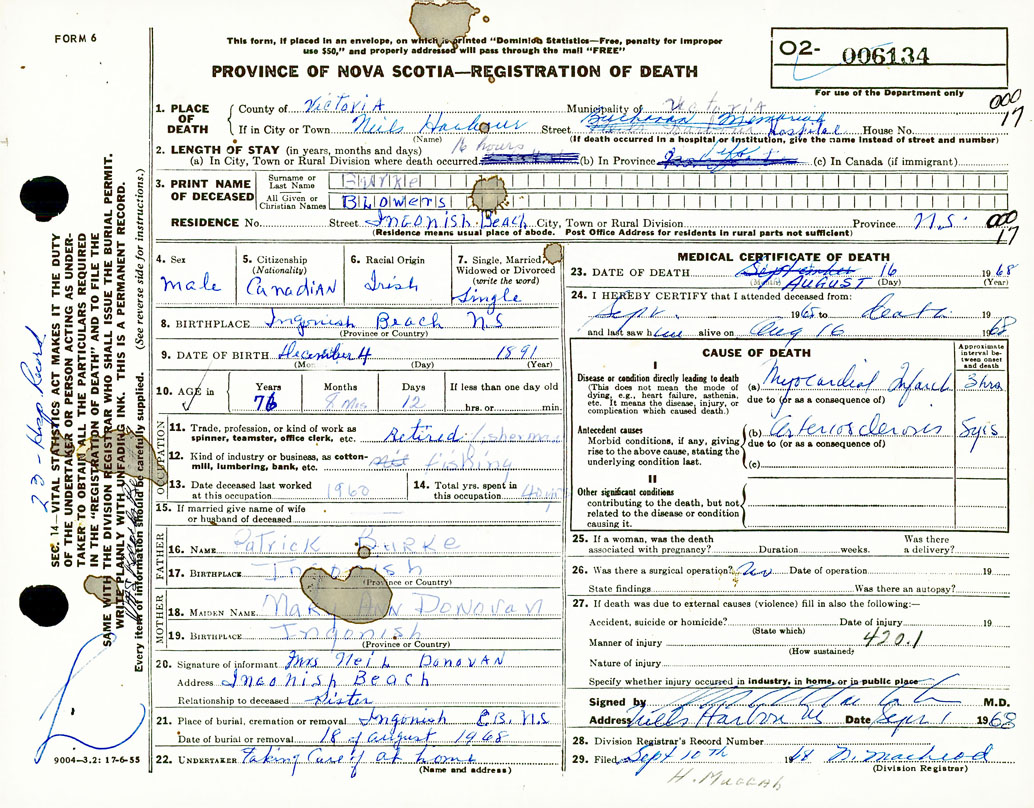 FORM 6
This form, if placed in an envelope, on which is printed "Dominion Statistics—Free, penalty for improper
use $50," and properly addressed will pass through the mail "FREE"
PROVINCE OF NOVA SCOTIA—REGISTRATION OF DEATH
O2- 006134
For use of the Department only
000
17
1. PLACE OF DEATH
County of Victoria Municipality of Victoria
Buchanan Memorial
If in City or Town Neils Harbour Street Hospital House No.
(Name) (If death occurred in a hospital or institution, give the name instead of street and number)
2. LENGTH OF STAY (in years, months and days) 16 hours
(a) In City, Town or Rural Division where death occurred (b) In Province Life (c) In Canada (if immigrant)
3. PRINT NAME OF DECEASED
Surname or Last Name
All Given or Christian Names BLOWERS
RESIDENCE No. Street Ingonish Beach City, Town or Rural Division Province N.S.
(Residence means usual place of abode. Post Office Address for residents in rural parts not sufficient)
000
17
4. Sex
male
5. Citizenship
(Nationality)
Canadian
6. Racial Origin
Irish
7. Single, Married,
Widowed or Divorced
(write the word)
Single
8. BIRTHPLACE Ingonish Beach N.S
(Province or Country)
9. DATE OF BIRTH December 4 1891
(Month) (Day) (Year)
10. AGE in
Years Months Days If less than one day old
76 8 mos 12 hrs. or min.
OCCUPATION
11. Trade, profession, or kind of work as
spinner, teamster, office clerk, etc. Retired fisherman
12. Kind of industry or business, as cotton-
mill, lumbering, bank, etc. fishing
13. Date deceased last worked
at this occupation 1960
14. Total yrs. spent in
this occupation
15. If married give name of wife
or husband of deceased
FATHER
16. NAME Patrick Burke
17. BIRTHPLACE Ingonish
(Province or Country)
MOTHER
18. MAIDEN NAME Mary Ann Donovan
19. BIRTHPLACE Ingonish
(Province or Country)
20. Signature of informant Mrs Neil Donovan
Address Ingonish Beach
Relationship to deceased Sister
21. Place of burial, cremation or removal Ingonish C.B. N.S
Date of burial or removal 18 of august 1968
22. UNDERTAKER Taking Care of at home
(Name and address)
9004—3.2: 17-6-55
MEDICAL CERTIFICATE OF DEATH
23. DATE OF DEATH September 16 1968
(Month) AUGUST (Day) (Year)
24. I HEREBY CERTIFY that I attended deceased from:
Sept. 1965 to death 19
and last saw him alive on Aug 16 1968
CAUSE OF DEATH
Approximate interval between onset and death
I
Disease or condition directly leading to death
(This does not mean the mode of
dying, e.g., heart failure, asthenia,
etc. It means the disease, injury, or
complication which caused death.)
(a) Myocardial Infarct 3 hrs
due to (or as a consequence of)
Antecedent causes
Morbid conditions, if any, giving
rise to the above cause, stating the
underlying condition last.
(b) Arteriosclerosis 5 yrs
due to (or as a consequence of)
(c)
II
Other significant conditions
contributing to the death, but not
related to the disease or condition
causing it.
25. If a woman, was the death
associated with pregnancy? Duration weeks. Was there
a delivery?
26. Was there a surgical operation? No Date of operation 19
State findings Was there an autopsy?
27. If death was due to external causes (violence) fill in also the following:—
Accident, suicide or homicide? Date of injury 19
(State which)
Manner of injury 420.1
(How sustained)
Nature of injury
Specify whether injury occurred in industry, in home, or in public place
Signed by M.D.
Address Neils Harbour Date Sept 1 1968
28. Division Registrar's Record Number
29. Filed Sept 10th 1968 N. MacLeod
(Division Registrar)
H. Muggah
SEC. 14—VITAL STATISTICS ACT MAKES IT THE DUTY
OF THE UNDERTAKER OR PERSON ACTING AS UNDER-
TAKER TO OBTAIN ALL THE PARTICULARS REQUIRED
IN THE "REGISTRATION OF DEATH" AND TO FILE THE
SAME WITH THE DIVISION REGISTRAR WHO SHALL ISSUE THE BURIAL PERMIT.
WRITE PLAINLY WITH UNFADING INK. THIS IS A PERMANENT RECORD.
Every item of information should be carefully supplied. (See reverse side for instructions.)
23 - Hosp. Record